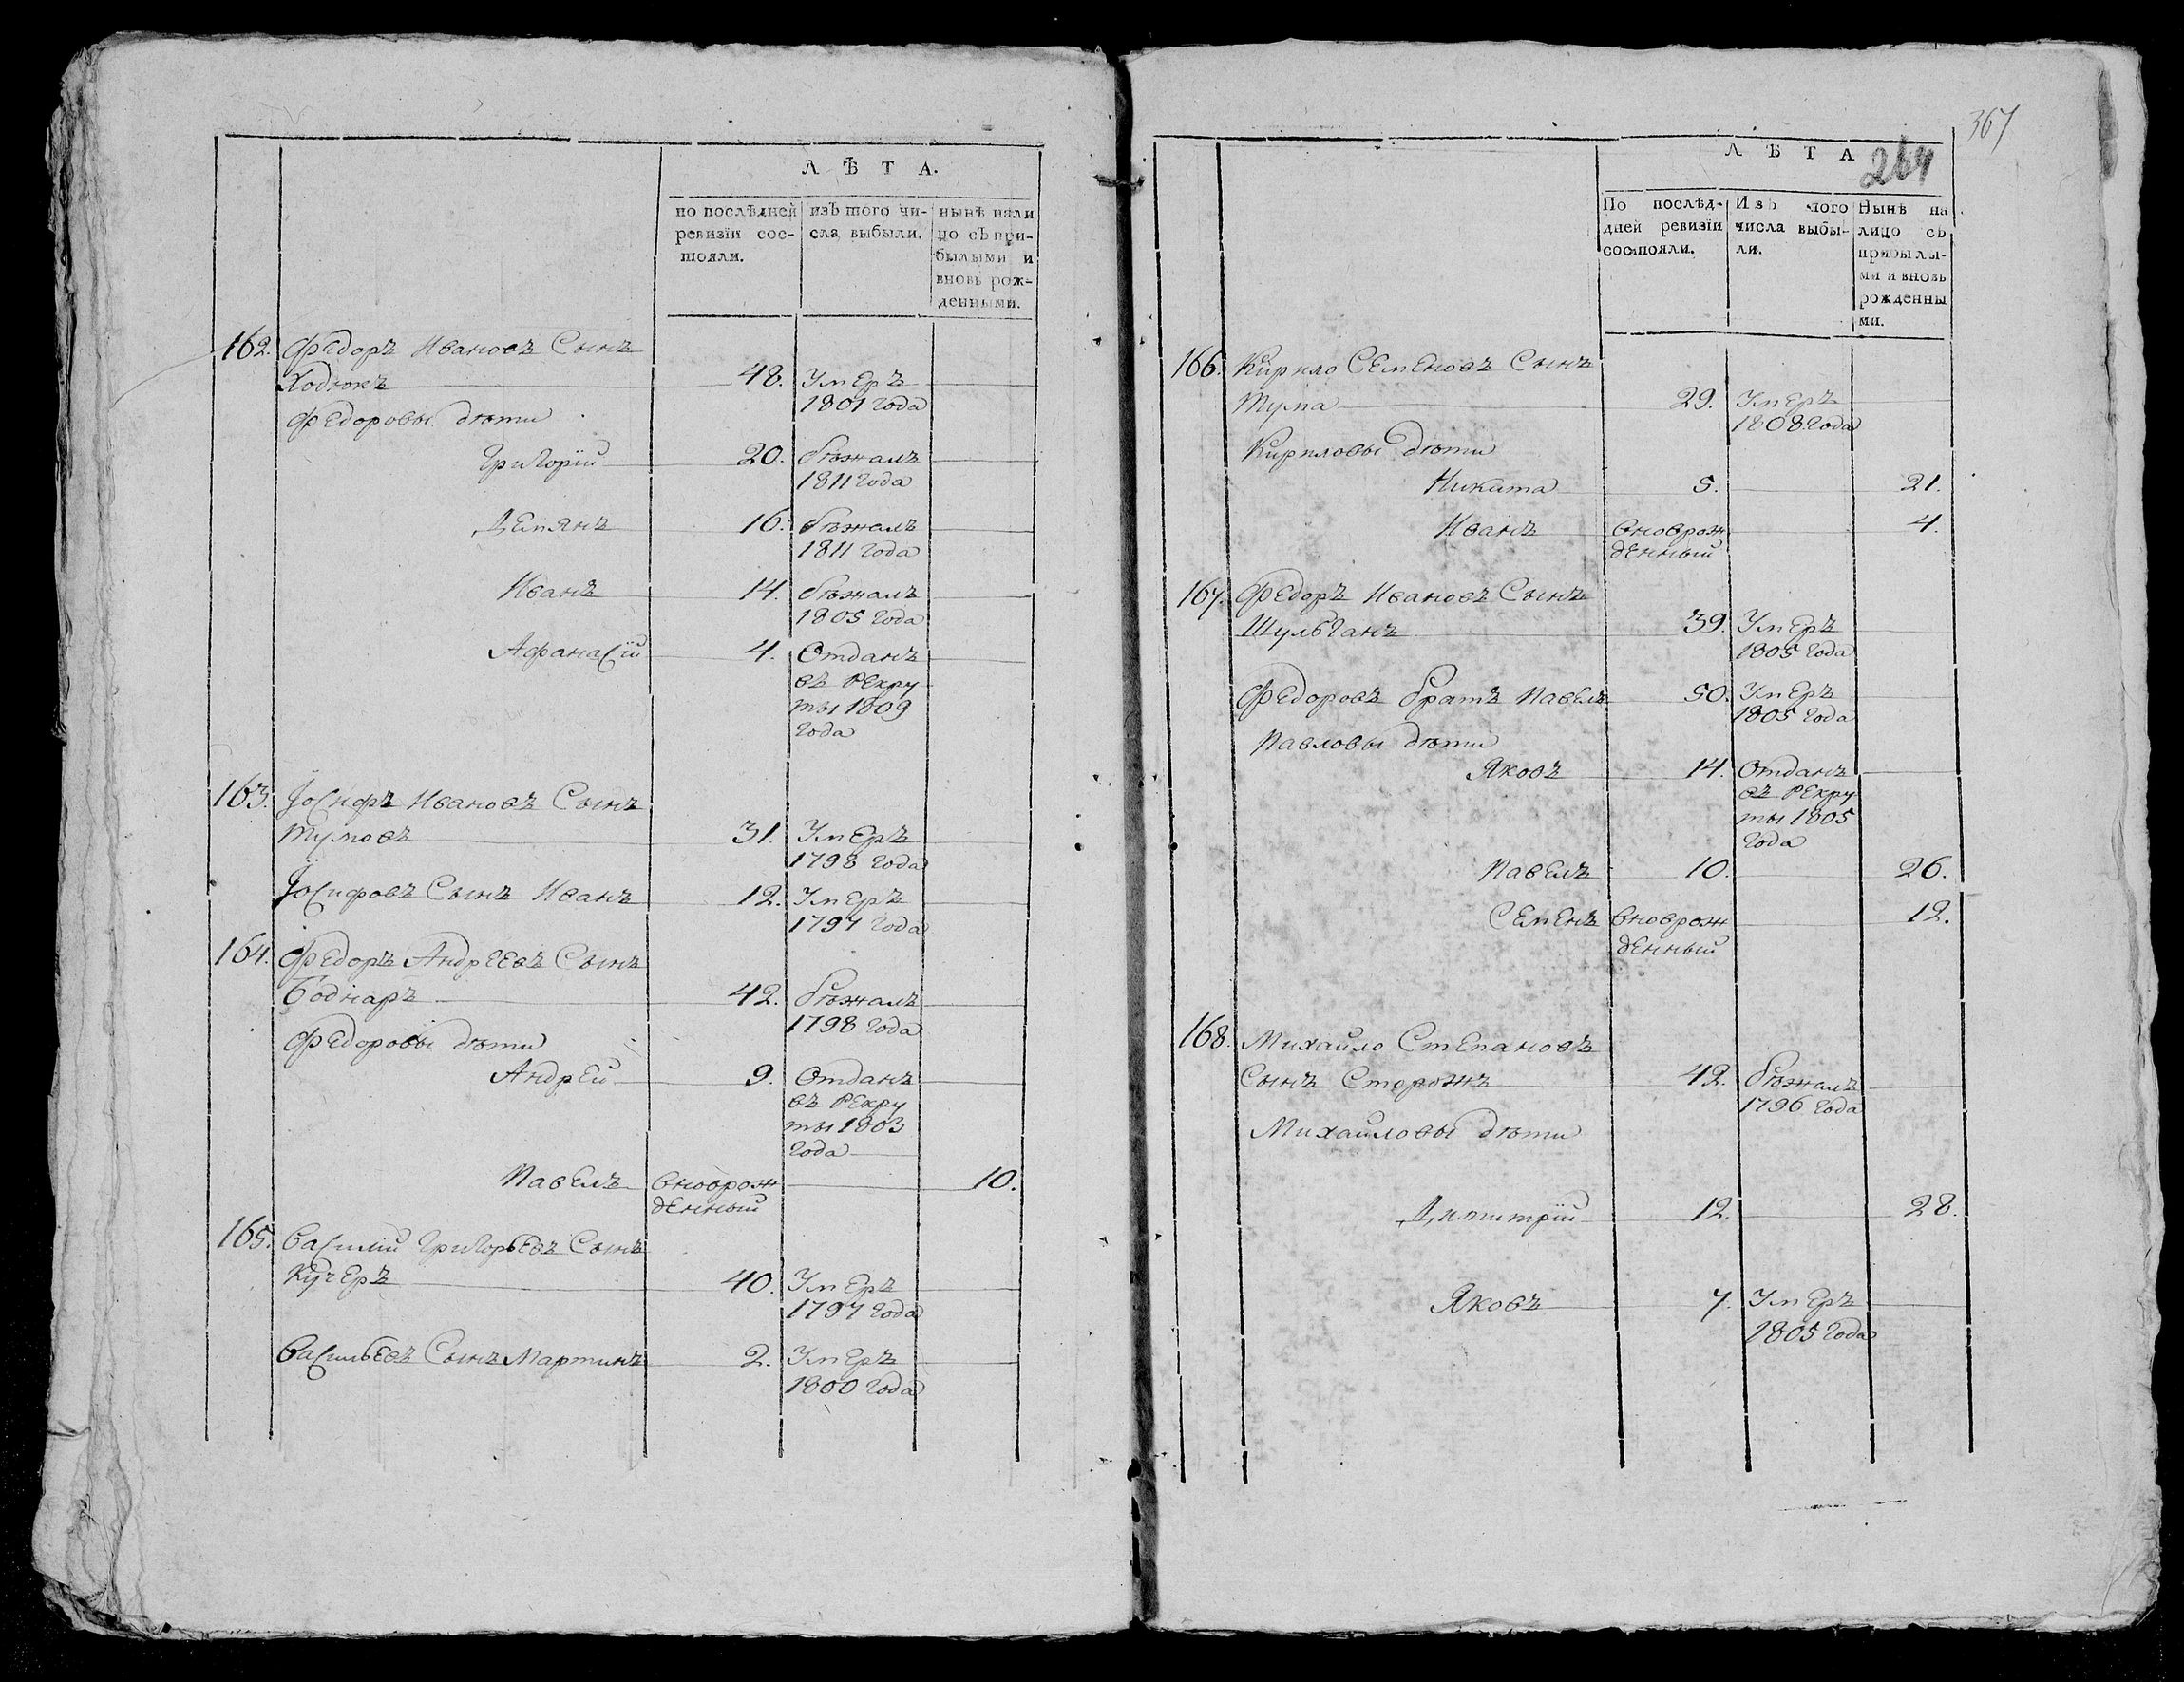 Л Ѣ Т А.
по послѣдней ревизїи состояли.
изъ того числа выбыли.
нынѣ налицо съ прибылыми и вновь рожденными.
162. Федоръ Ивановъ Сынъ
Ходюкъ 48. Умеръ
1801 года
Федоровы дѣти
Григорїй 20. бѣжалъ
1811 года
Демянъ 16. бѣжалъ
1811 года
Иванъ 14. бѣжалъ
1805 года
Афанасїй 4. Отданъ
въ Рекру
ты 1809
года
163. Іосифъ Ивановъ Сынъ
Тумовъ 31. Умеръ
1798 года
Іосифовъ Сынъ Иванъ 12. Умеръ
1797 года
164. Федоръ Андреевъ Сынъ
Боднаръ 42. бѣжалъ
1798 года
Федоровы дѣти
Андрей 9. Отданъ
въ Рекру
ты 1803
года
Павелъ вноврож 10.
денный
165. Василїй Григорьевъ Сынъ
Кучеръ 40. Умеръ
1797 года
Васильевъ Сынъ Мартинъ 2. Умеръ
1800 года
367
Л Ѣ Т А
264
По послѣдней ревизїи состояли.
Изъ того числа выбыли.
Нынѣ на лицо съ прибылыми и вновь рожденными.
166. Кирило Семеновъ Сынъ
Тума 29. Умеръ
1808 года
Кириловы дѣти
Никита 5. 21.
Иванъ вноврож 4.
денный
167. Федоръ Ивановъ Сынъ
Шульганъ 39. Умеръ
1805 года
Федоровъ братъ Павелъ 50. Умеръ
1805 года
Павловы дѣти
Яковъ 14. Отданъ
въ Рекру
ты 1805
года
Павелъ 10. 26.
Семенъ вноврож 12.
денный
168. Михайло Степановъ
Сынъ Сторожъ 42. бѣжалъ
1796 года
Михайловы дѣти
Димитрїй 12. 28.
Яковъ 7. Умеръ
1805 года